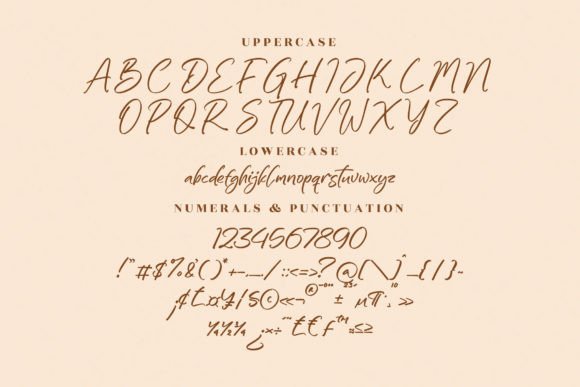 UPPERCASE
ABCDEFGHIJKLMN
OPQRSTUVWXYZ
LOWERCASE
abcdefghijklmnopqrstuvwxyz
NUMERALS & PUNCTUATION
1234567890
!"#$%&'()*+-.../:;<=>?@[\]^_{|}~
¡¢£¤¥¦§©«¬®¯°±²³µ¶·¸¹»
¼½¾¿×÷ʻʼ₤€ƒ™≈≤≥